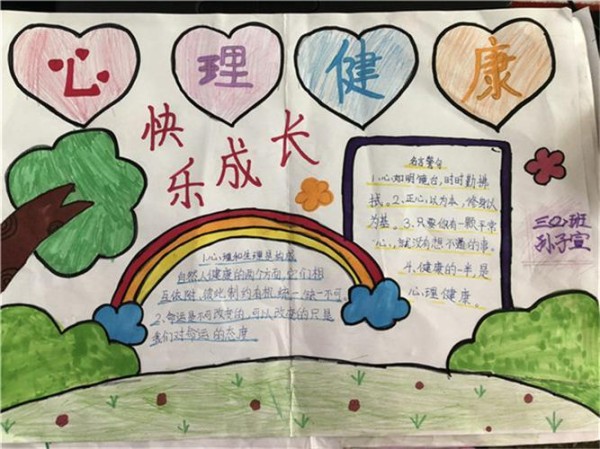 心理健康
快乐成长
名言警句
1.心如明镜台,时时勤拂
拭。2、正心,以为本,修身以
为基。3、只要你有一颗平常
心,就没有想不通的事。
4、健康的一半是
心理健康。
三(2)班
孙子宣
1.心理和生理是构成
自然人健康的两个方面,它们相
互依附、彼此制约有机统一,缺一不可。
2、命运是不可改变的,可以改变的只是
我们对命运的态度